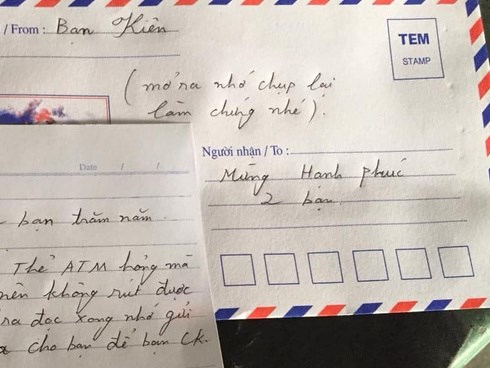 / From : Bạn Kiên
TEM
STAMP
(mở ra nhớ chụp lại
làm chứng nhé).
Người nhận / To :
Mừng Hạnh phúc
2 bạn
Date / /
bạn trăm năm
Thẻ ATM hỏng mà
nên không rút được
ra đọc xong nhớ gửi
cho bạn để bạn CK.